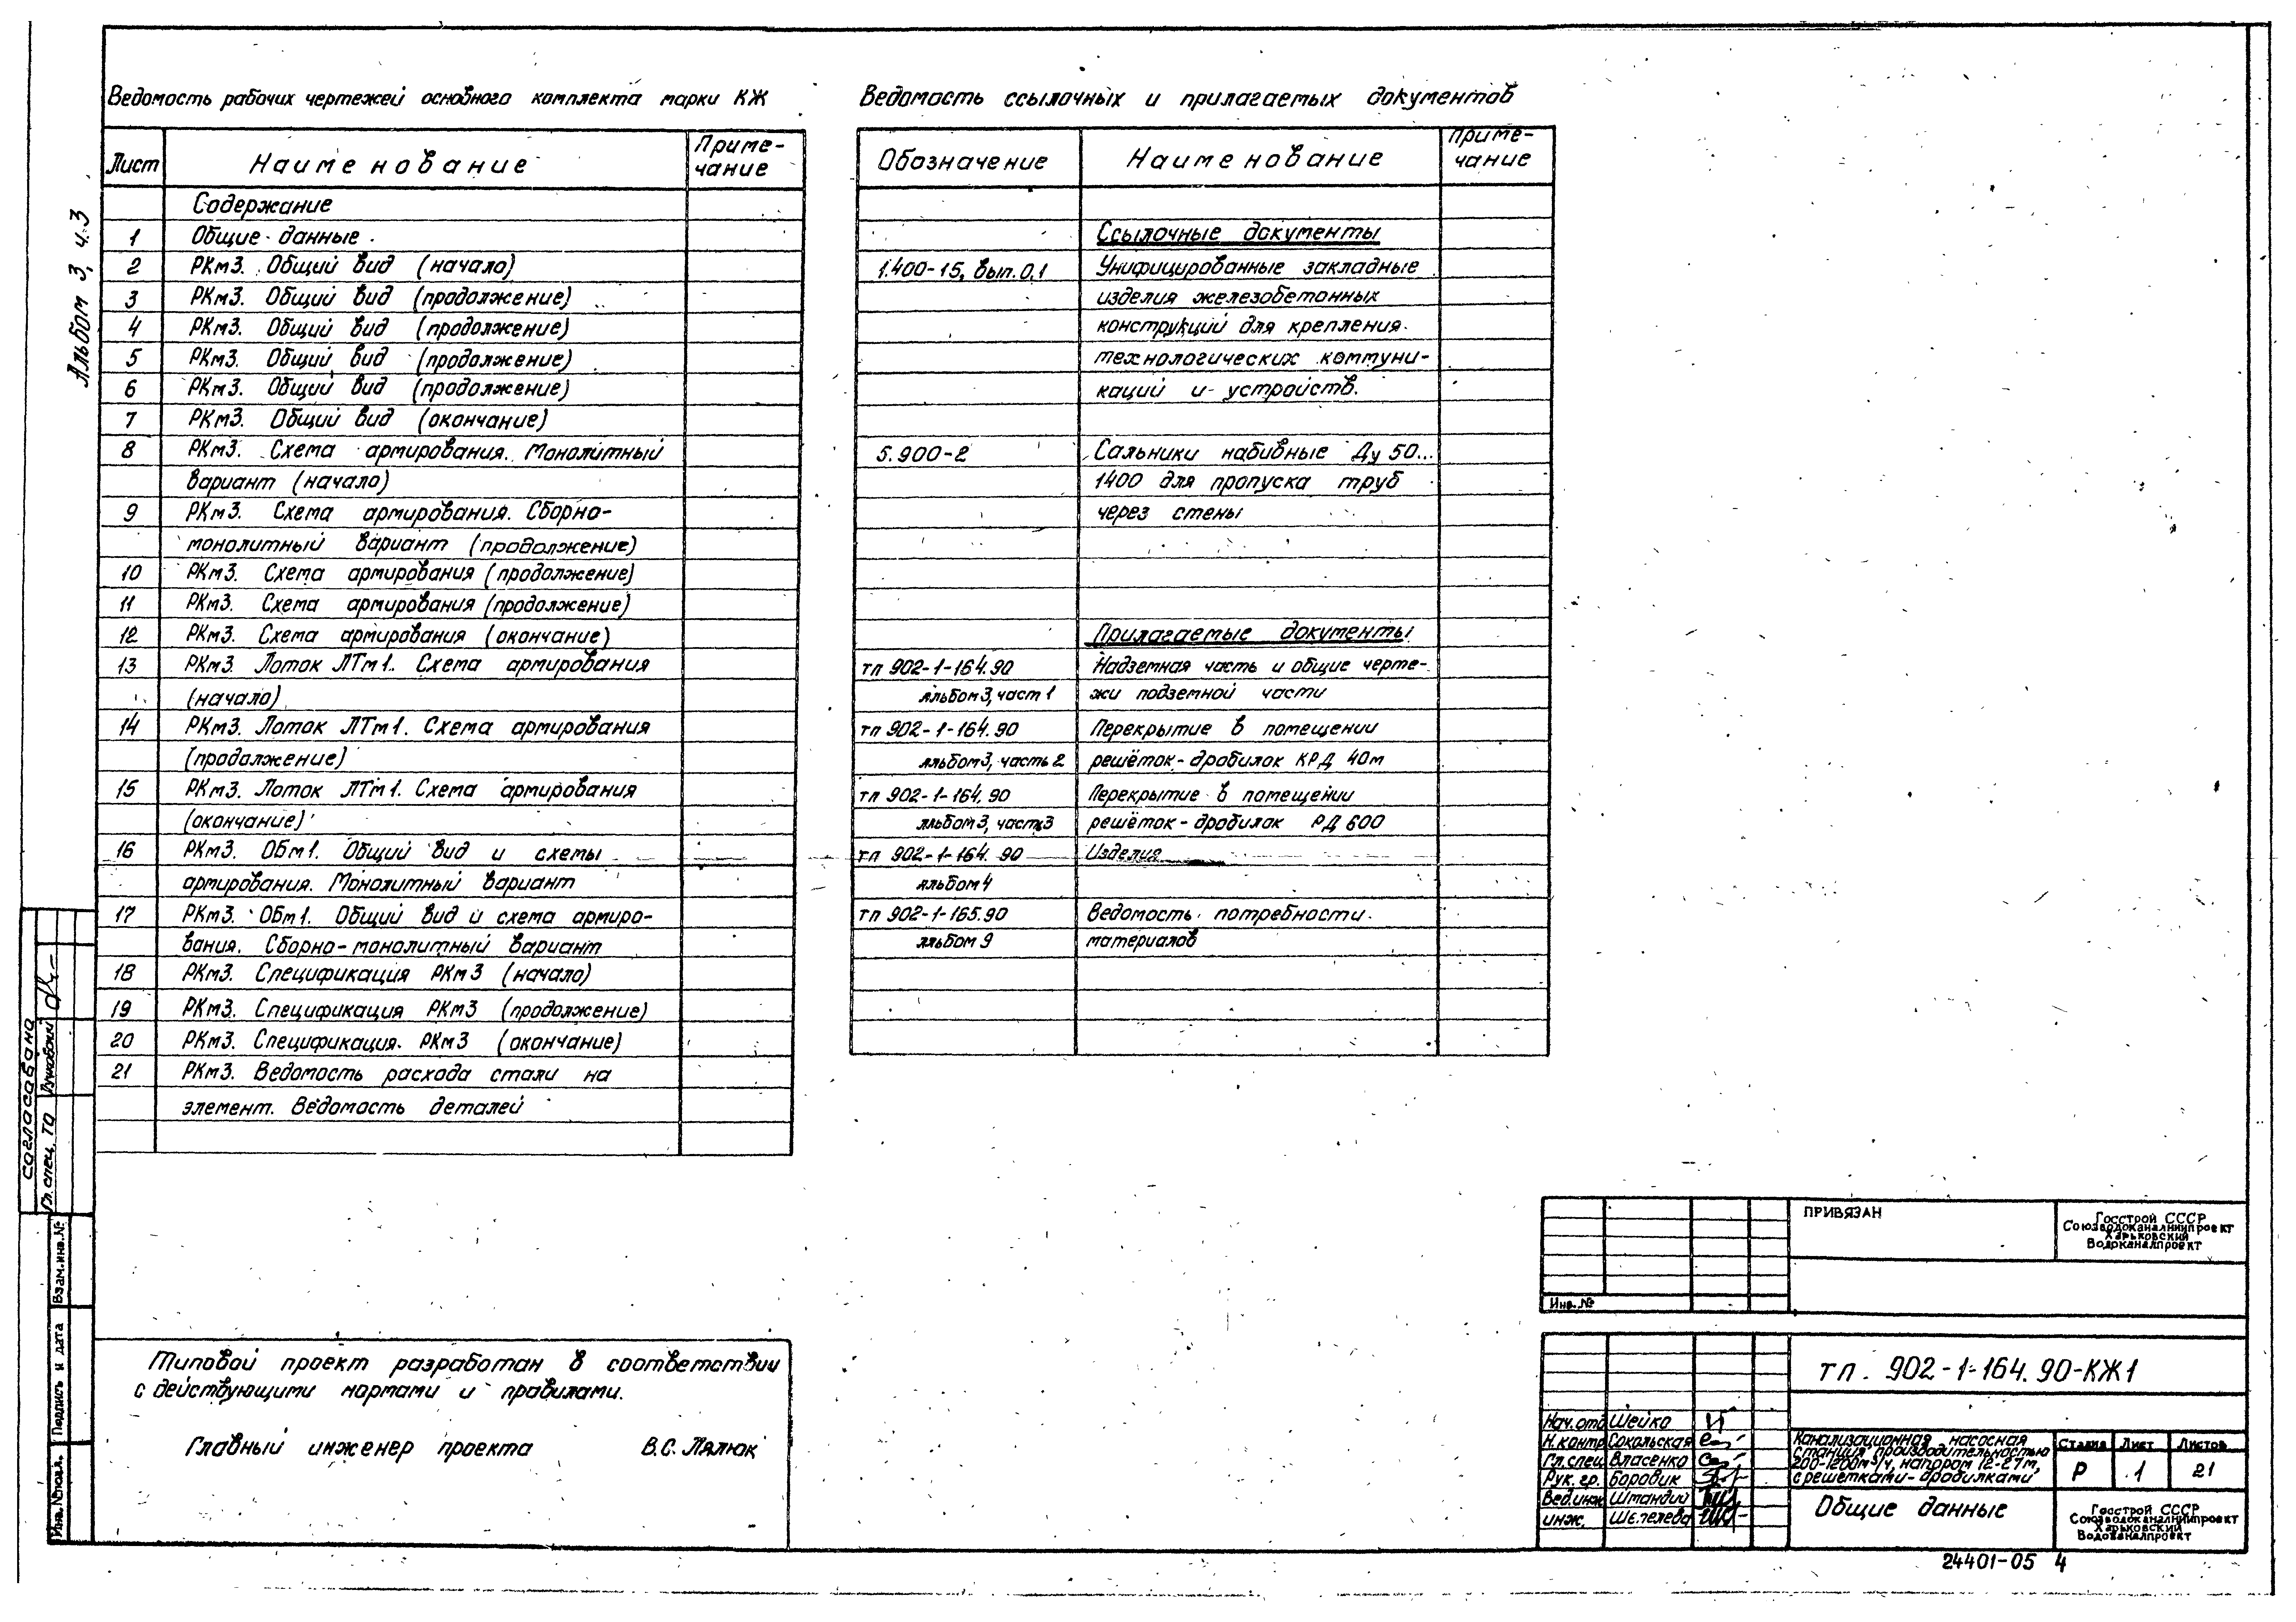 Альбом 3, ч.3
Ведомость рабочих чертежей основного комплекта марки КЖ
Лист Наименование Приме-
чание
Содержание
1 Общие данные.
2 РКм3. Общий вид (начало)
3 РКм3. Общий вид (продолжение)
4 РКм3. Общий вид (продолжение)
5 РКм3. Общий вид (продолжение)
6 РКм3. Общий вид (продолжение)
7 РКм3. Общий вид (окончание)
8 РКм3. Схема армирования. Монолитный
вариант (начало)
9 РКм3. Схема армирования. Сборно-
монолитный вариант (продолжение)
10 РКм3. Схема армирования (продолжение)
11 РКм3. Схема армирования (продолжение)
12 РКм3. Схема армирования (окончание)
13 РКм3. Лоток ЛТм1. Схема армирования
(начало)
14 РКм3. Лоток ЛТм1. Схема армирования
(продолжение)
15 РКм3. Лоток ЛТм1. Схема армирования
(окончание)
16 РКм3. ОБм1. Общий вид и схемы
армирования. Монолитный вариант
17 РКм3. ОБм1. Общий вид и схема армиро-
вания. Сборно-монолитный вариант
18 РКм3. Спецификация РКм3 (начало)
19 РКм3. Спецификация РКм3 (продолжение)
20 РКм3. Спецификация. РКм3 (окончание)
21 РКм3. Ведомость расхода стали на
элемент. Ведомость деталей
Ведомость ссылочных и прилагаемых документов
Обозначение Наименование Приме-
чание
Ссылочные документы
1.400-15, вып.0,1 Унифицированные закладные
изделия железобетонных
конструкций для крепления
технологических коммуни-
каций и устройств.
5.900-2 Сальники набивные Ду 50...
1400 для пропуска труб
через стены
Прилагаемые документы
тп 902-1-164.90 Надземная часть и общие черте-
альбом3, част 1 жи подземной части
тп 902-1-164.90 Перекрытие в помещении
альбом3, часть 2 решёток-дробилок КРД 40м
тп 902-1-164.90 Перекрытие в помещении
альбом3, часть3 решёток-дробилок РД 600
тп 902-1-164.90 Изделия
альбом 4
тп 902-1-165.90 Ведомость потребности
альбом 9 материалов
Согласовано
Гл. спец. ТО
Взам.инв.№
Подпись и дата
Инв.№подл.
Типовой проект разработан в соответствии
с действующими нормами и правилами.
Главный инженер проекта В.С. Пялюк
ПРИВЯЗАН
Госстрой СССР
Союзводоканалниипроект
Харьковский
Водоканалпроект
Инв.№
тп. 902-1-164.90-КЖ1
Нач.отд Шейко
Н.контр Сокольская
Гл.спец Власенко
Рук.гр. Боровик
Вед.инж Штандий
инж. Шепелева
Канализационная насосная
станция производительностью
200-1200м³/ч, напором 12-27м,
с решётками-дробилками
Стадия Лист Листов
Р 1 21
Общие данные
Госстрой СССР
Союзводоканалниипроект
Харьковский
Водоканалпроект
24401-05 4